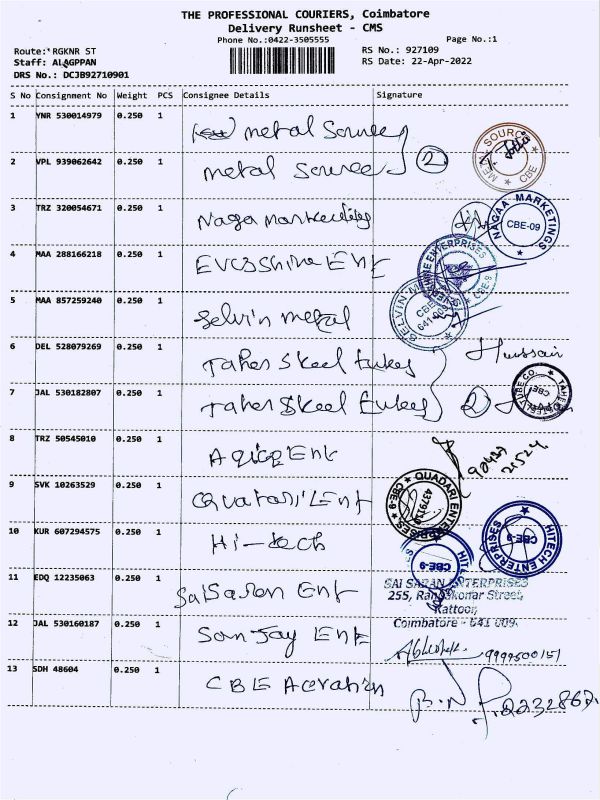 THE PROFESSIONAL COURIERS, Coimbatore
Delivery Runsheet - CMS
Phone No.:0422-3505555
Page No.:1
Route: RGKNR ST
RS No.: 927109
Staff: ALAGPPAN
RS Date: 22-Apr-2022
DRS No.: DCJB92710901
S No Consignment No Weight PCS Consignee Details Signature
1 YNR 530014979 0.250 1 metal Source
2 VPL 939062642 0.250 1 metal Source 2
METAL SOURCE CBE
3 TRZ 320054671 0.250 1 Naga Marketings
NAGAA MARKETINGS CBE-09
4 MAA 288166218 0.250 1 Evasshine Ent
ENTERPRISES CBE-9
5 MAA 857259240 0.250 1 Selvin metal
SELVIN CBE 641 009
6 DEL 528079269 0.250 1 Taher Steel tubes Hussain
7 JAL 530182807 0.250 1 Taher Steel tubes 2
TAHER STEEL TUBE CO. CBE
8 TRZ 50545010 0.250 1 Ent
9 SVK 10263529 0.250 1 Ent
QUADARI ENTERPRISES CBE-9 4379110
10 KUR 607294575 0.250 1 Hi-tech
HITECH CBE-9
HITECH ENTERPRISES CBE-9
11 EDQ 12235063 0.250 1 SaiSaran Ent
SAI SARAN ENTERPRISES
255, Street,
Kattoor,
Coimbatore - 641 009.
12 JAL 530160187 0.250 1 Sanjay Ent
13 SDH 48604 0.250 1 CBE